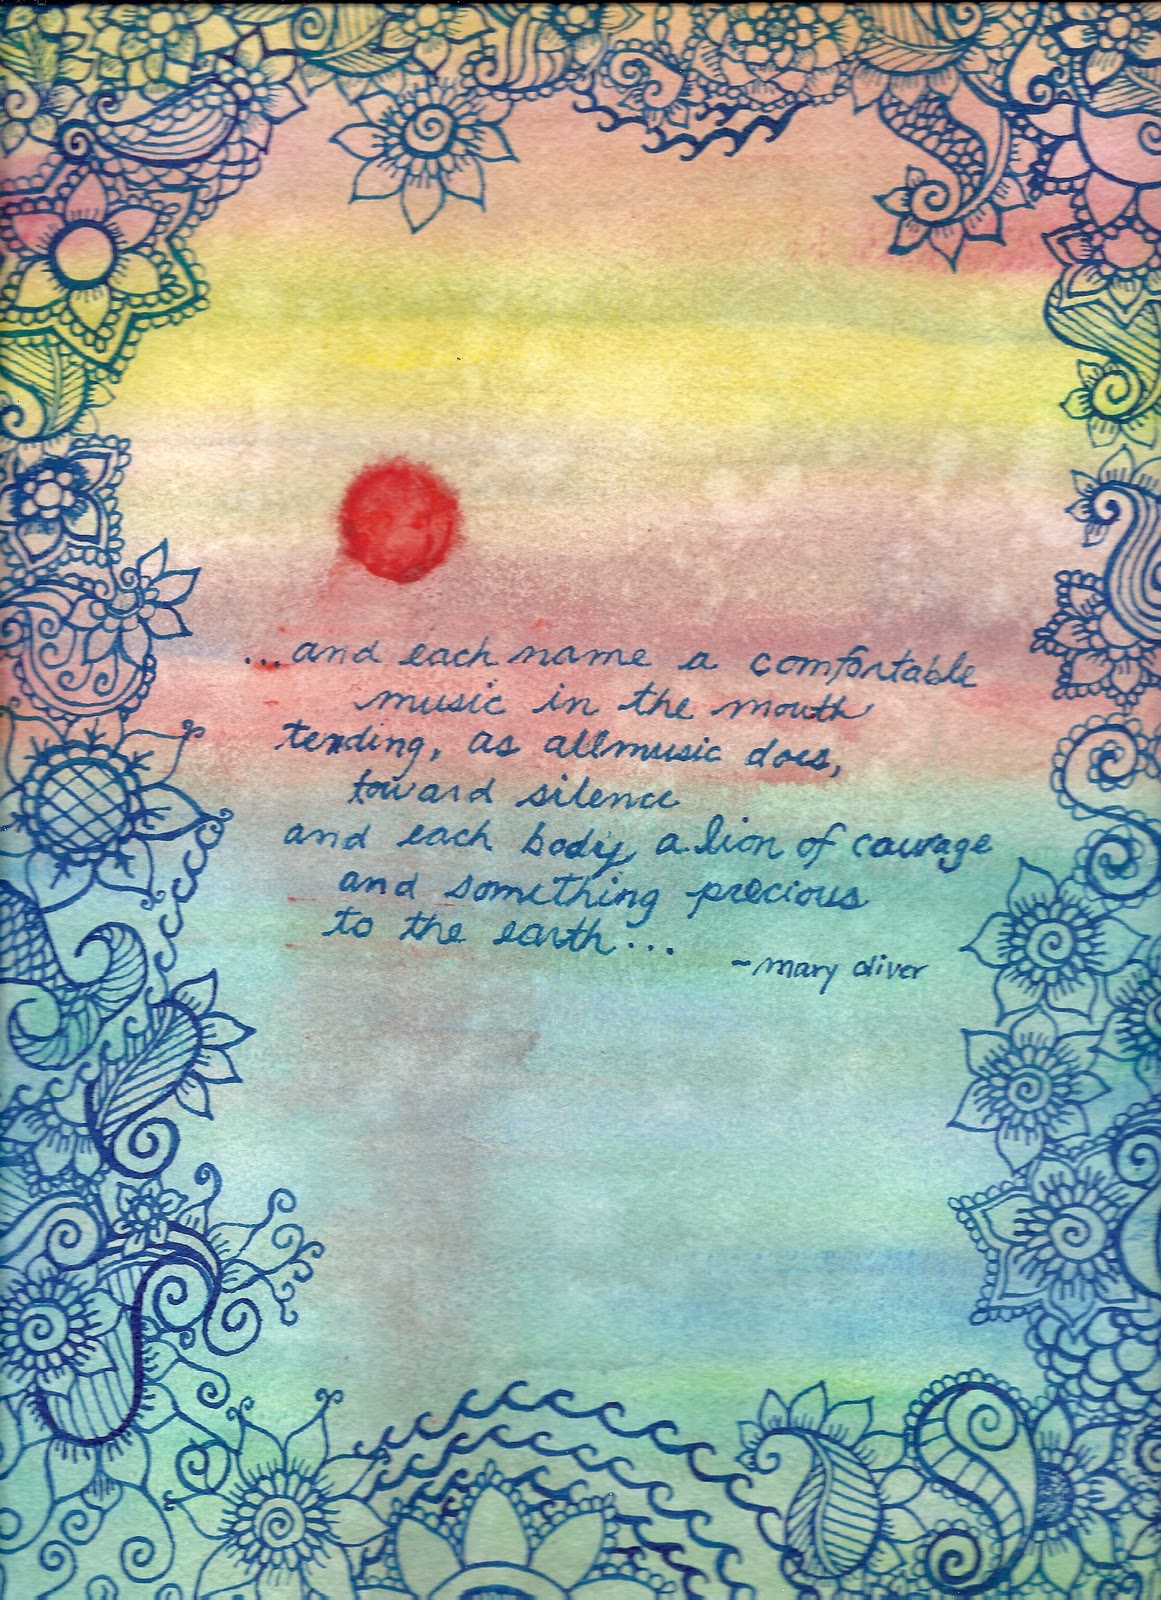 ...and each name a comfortable
music in the mouth
tending, as all music does,
toward silence
and each body a lion of courage
and something precious
to the earth...
~mary oliver